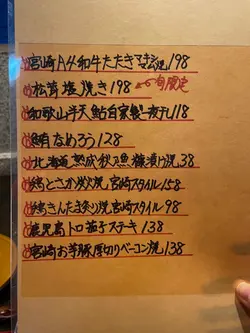 宮崎A4和牛たたき 198
松茸塩焼き 198 旬限定
和歌山半天鮎自家製一夜干し 118
鯛なめろう 128
北海道熟成秋刀魚糠漬け焼 38
鶏とさか炭火焼 宮崎スタイル 158
鶏きんたま炙り焼 宮崎スタイル 98
鹿児島トロ茄子ステーキ 138
宮崎お芋豚厚切りベーコン焼 138